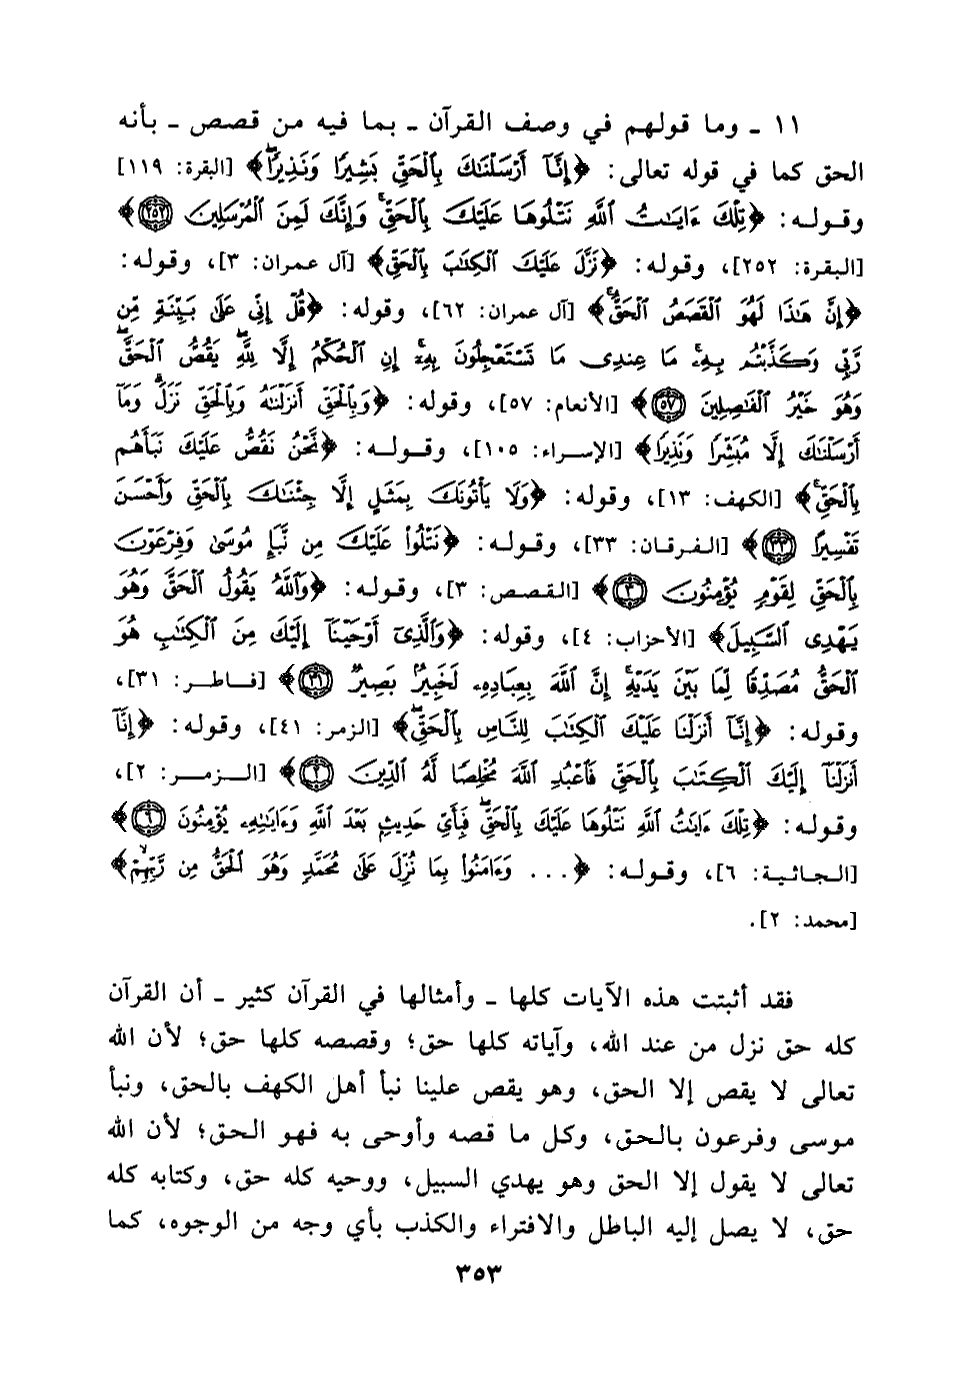 ١١ ـ وما قولهم في وصف القرآن ـ بما فيه من قصص ـ بأنه
الحق كما في قوله تعالى: ﴿إِنَّآ أَرْسَلْنَٰكَ بِٱلْحَقِّ بَشِيرًا وَنَذِيرًا ۖ﴾ [البقرة: ١١٩]
وقوله: ﴿تِلْكَ ءَايَٰتُ ٱللَّهِ نَتْلُوهَا عَلَيْكَ بِٱلْحَقِّ ۚ وَإِنَّكَ لَمِنَ ٱلْمُرْسَلِينَ ٢٥٢﴾
[البقرة: ٢٥٢]، وقوله: ﴿نَزَّلَ عَلَيْكَ ٱلْكِتَٰبَ بِٱلْحَقِّ﴾ [آل عمران: ٣]، وقوله:
﴿إِنَّ هَٰذَا لَهُوَ ٱلْقَصَصُ ٱلْحَقُّ ۚ﴾ [آل عمران: ٦٢]، وقوله: ﴿قُلْ إِنِّي عَلَىٰ بَيِّنَةٍ مِّن
رَّبِّي وَكَذَّبْتُم بِهِۦ ۚ مَا عِندِي مَا تَسْتَعْجِلُونَ بِهِۦٓ ۚ إِنِ ٱلْحُكْمُ إِلَّا لِلَّهِ ۖ يَقُصُّ ٱلْحَقَّ ۖ
وَهُوَ خَيْرُ ٱلْفَٰصِلِينَ ٥٧﴾ [الأنعام: ٥٧]، وقوله: ﴿وَبِٱلْحَقِّ أَنزَلْنَٰهُ وَبِٱلْحَقِّ نَزَلَ ۗ وَمَآ
أَرْسَلْنَٰكَ إِلَّا مُبَشِّرًا وَنَذِيرًا﴾ [الإسراء: ١٠٥]، وقوله: ﴿نَّحْنُ نَقُصُّ عَلَيْكَ نَبَأَهُم
بِٱلْحَقِّ ۚ﴾ [الكهف: ١٣]، وقوله: ﴿وَلَا يَأْتُونَكَ بِمَثَلٍ إِلَّا جِئْنَٰكَ بِٱلْحَقِّ وَأَحْسَنَ
تَفْسِيرًا ٣٣﴾ [الفرقان: ٣٣]، وقوله: ﴿نَتْلُوا۟ عَلَيْكَ مِن نَّبَإِ مُوسَىٰ وَفِرْعَوْنَ
بِٱلْحَقِّ لِقَوْمٍ يُؤْمِنُونَ ٣﴾ [القصص: ٣]، وقوله: ﴿وَٱللَّهُ يَقُولُ ٱلْحَقَّ وَهُوَ
يَهْدِي ٱلسَّبِيلَ﴾ [الأحزاب: ٤]، وقوله: ﴿وَٱلَّذِيٓ أَوْحَيْنَآ إِلَيْكَ مِنَ ٱلْكِتَٰبِ هُوَ
ٱلْحَقُّ مُصَدِّقًا لِّمَا بَيْنَ يَدَيْهِ ۗ إِنَّ ٱللَّهَ بِعِبَادِهِۦ لَخَبِيرٌۢ بَصِيرٌ ٣١﴾ [فاطر: ٣١]،
وقوله: ﴿إِنَّآ أَنزَلْنَا عَلَيْكَ ٱلْكِتَٰبَ لِلنَّاسِ بِٱلْحَقِّ ۖ﴾ [الزمر: ٤١]، وقوله: ﴿إِنَّآ
أَنزَلْنَآ إِلَيْكَ ٱلْكِتَٰبَ بِٱلْحَقِّ فَٱعْبُدِ ٱللَّهَ مُخْلِصًا لَّهُ ٱلدِّينَ ٢﴾ [الزمر: ٢]،
وقوله: ﴿تِلْكَ ءَايَٰتُ ٱللَّهِ نَتْلُوهَا عَلَيْكَ بِٱلْحَقِّ ۖ فَبِأَيِّ حَدِيثٍۭ بَعْدَ ٱللَّهِ وَءَايَٰتِهِۦ يُؤْمِنُونَ ٦﴾
[الجاثية: ٦]، وقوله: ﴿. . . وَءَامَنُوا۟ بِمَا نُزِّلَ عَلَىٰ مُحَمَّدٍ وَهُوَ ٱلْحَقُّ مِن رَّبِّهِمْ ۙ﴾
[محمد: ٢].
فقد أثبتت هذه الآيات كلها ـ وأمثالها في القرآن كثير ـ أن القرآن
كله حق نزل من عند الله، وآياته كلها حق؛ وقصصه كلها حق؛ لأن الله
تعالى لا يقص إلا الحق، وهو يقص علينا نبأ أهل الكهف بالحق، ونبأ
موسى وفرعون بالحق، وكل ما قصه وأوحى به فهو الحق؛ لأن الله
تعالى لا يقول إلا الحق وهو يهدي السبيل، ووحيه كله حق، وكتابه كله
حق، لا يصل إليه الباطل والافتراء والكذب بأي وجه من الوجوه، كما
٣٥٣